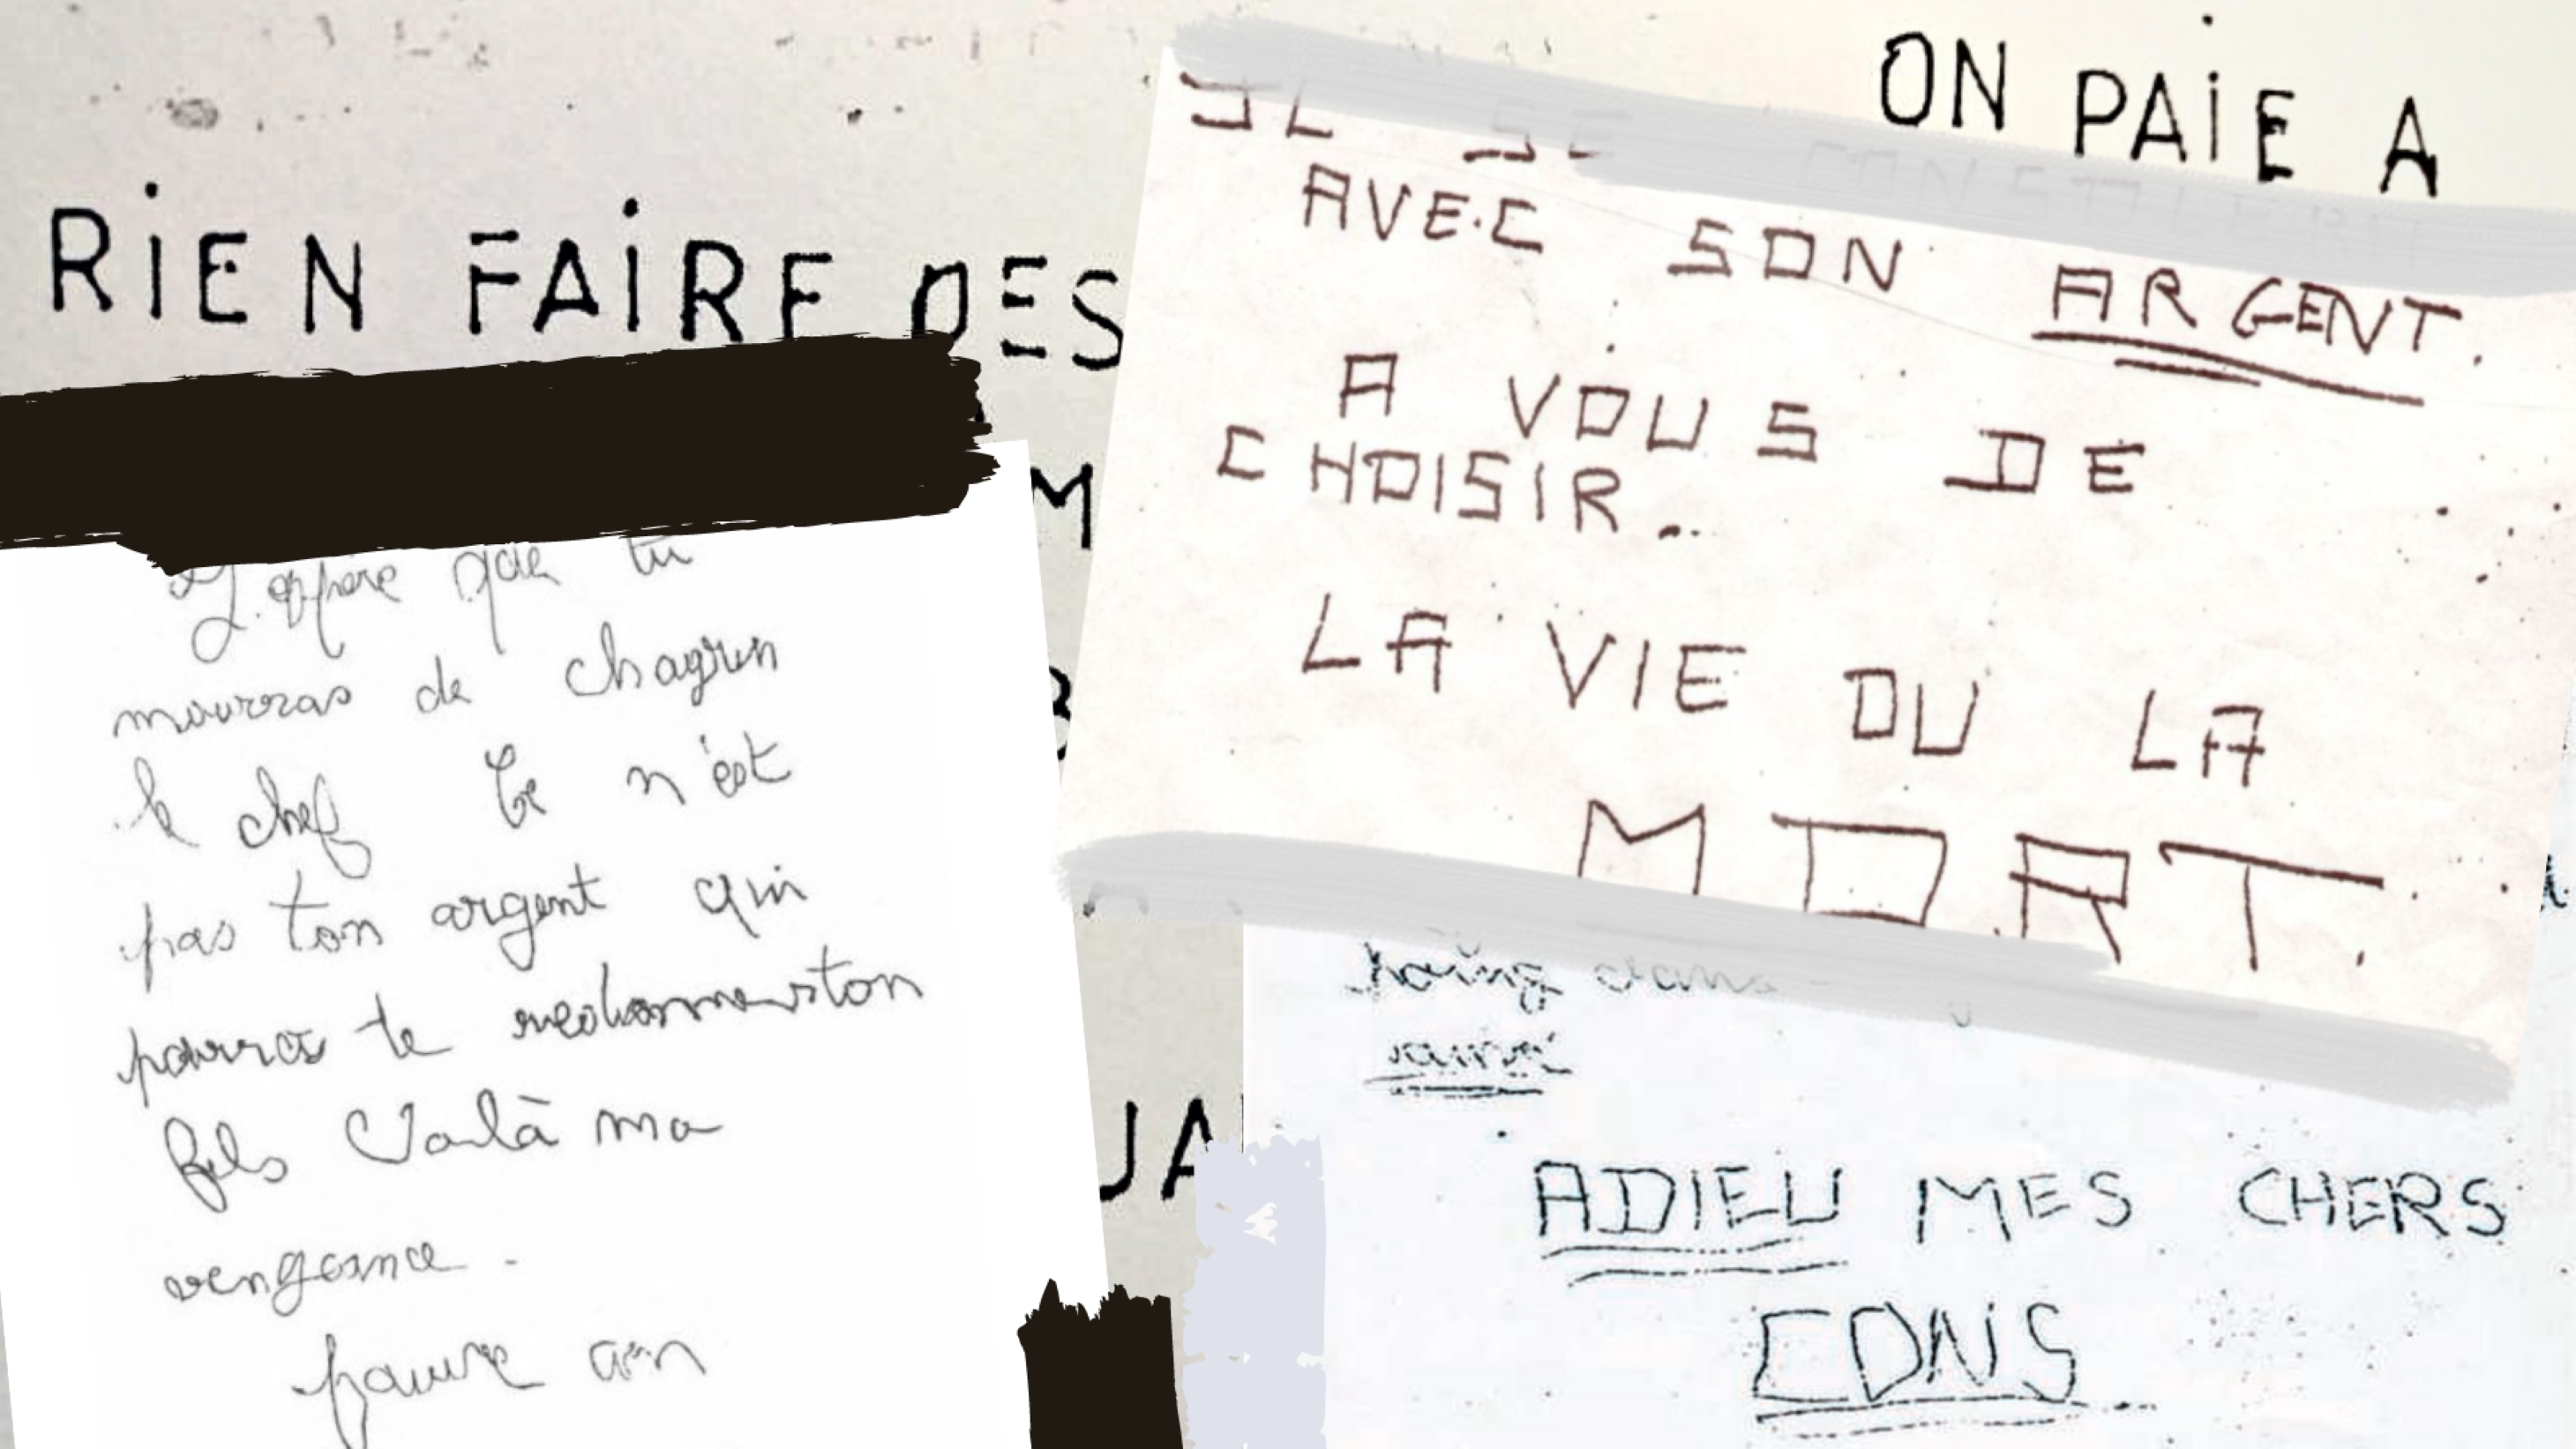 ON PAIE A
RIEN FAIRE DES
M
JA
IL SE
AVEC SON ARGENT.
A VOUS DE
CHOISIR..
LA VIE OU LA
MORT.
J'espere que tu
mourras de chagrin
le chef Ce n'est
pas ton argent qui
pourra te redonner ton
fils Voilà ma
vengeance.
pauvre con
dans
ADIEU MES CHERS
CONS